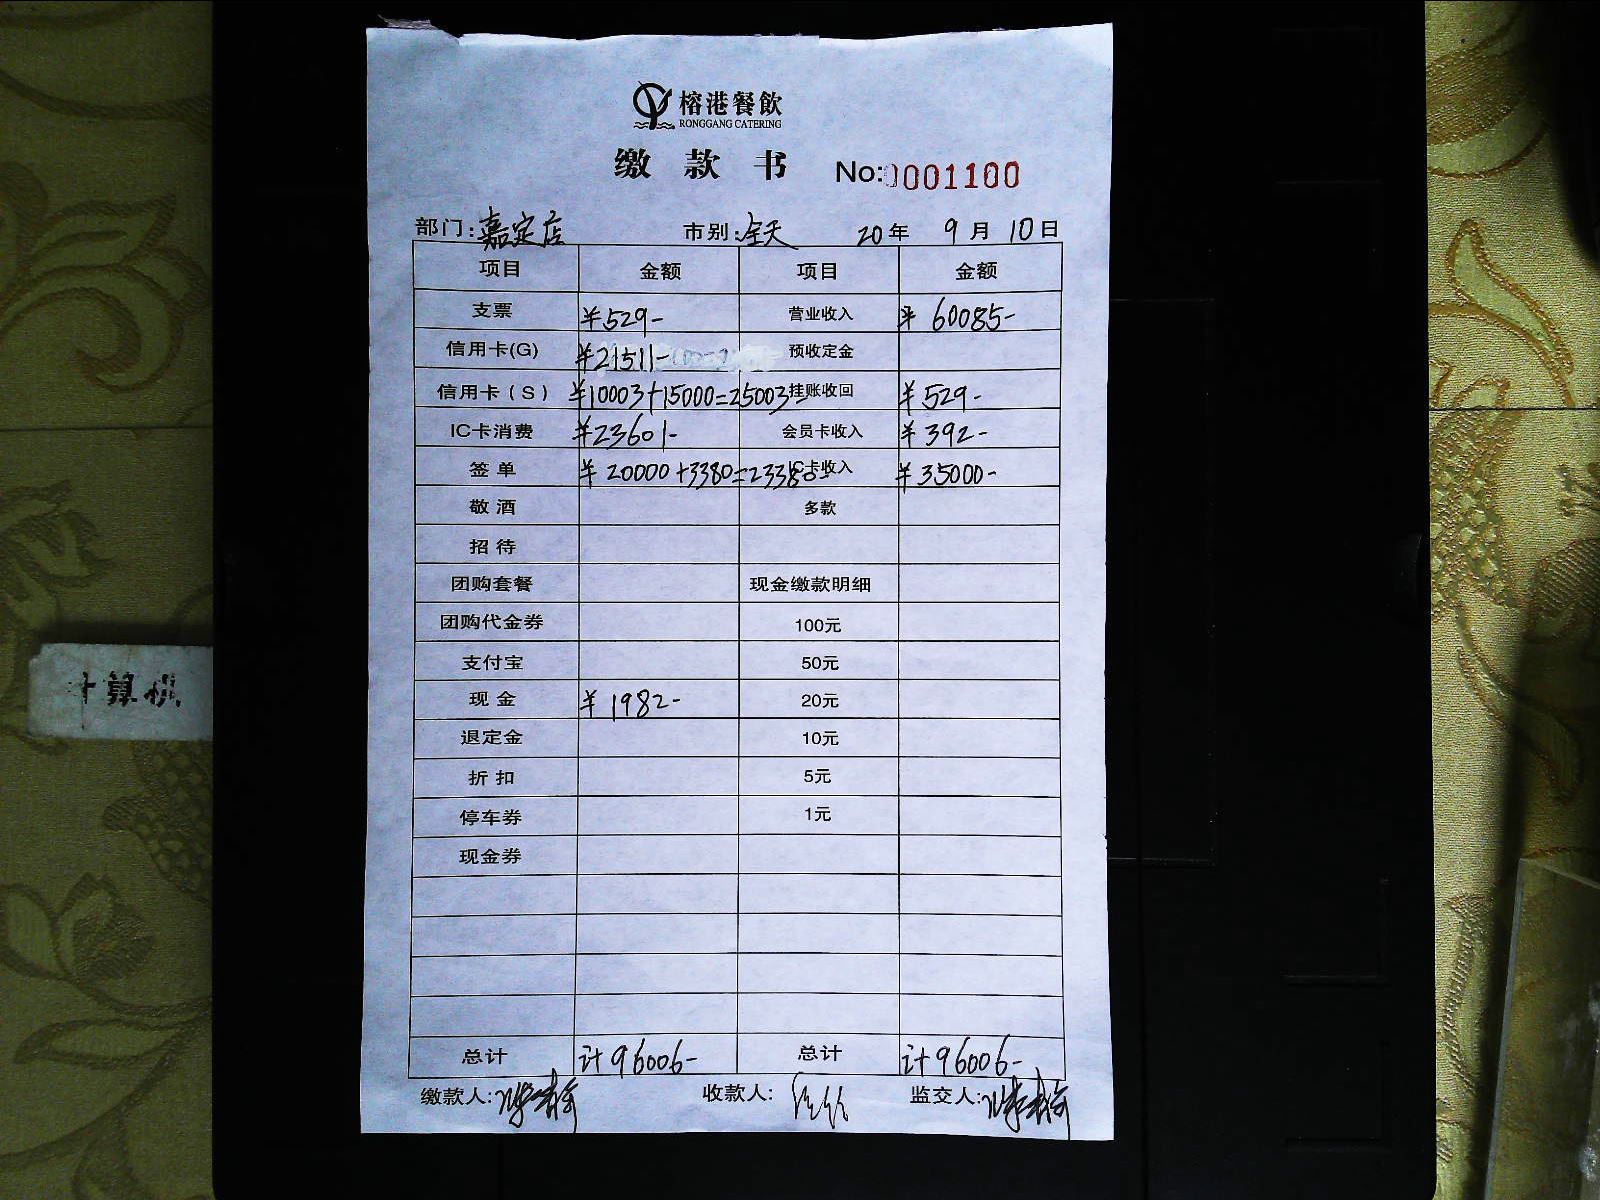 榕港餐飲
RONGGANG CATERING
缴款书 No:0001100
部门:嘉定店 市别:全天 20年 9月 10日
项目 金额 项目 金额
支票 ¥529- 营业收入 ¥60085-
信用卡(G) ¥21511- 预收定金
信用卡(S) ¥10003+15000=25003- 挂账收回 ¥529-
IC卡消费 ¥23601- 会员卡收入 ¥392-
签单 ¥20000+3380=23380- IC卡收入 ¥35000-
敬酒 多款
招待
团购套餐 现金缴款明细
团购代金券 100元
支付宝 50元
现金 ¥1982- 20元
退定金 10元
折扣 5元
停车券 1元
现金券
总计 计96006- 总计 计96006-
缴款人: 收款人: 监交人:
计算机